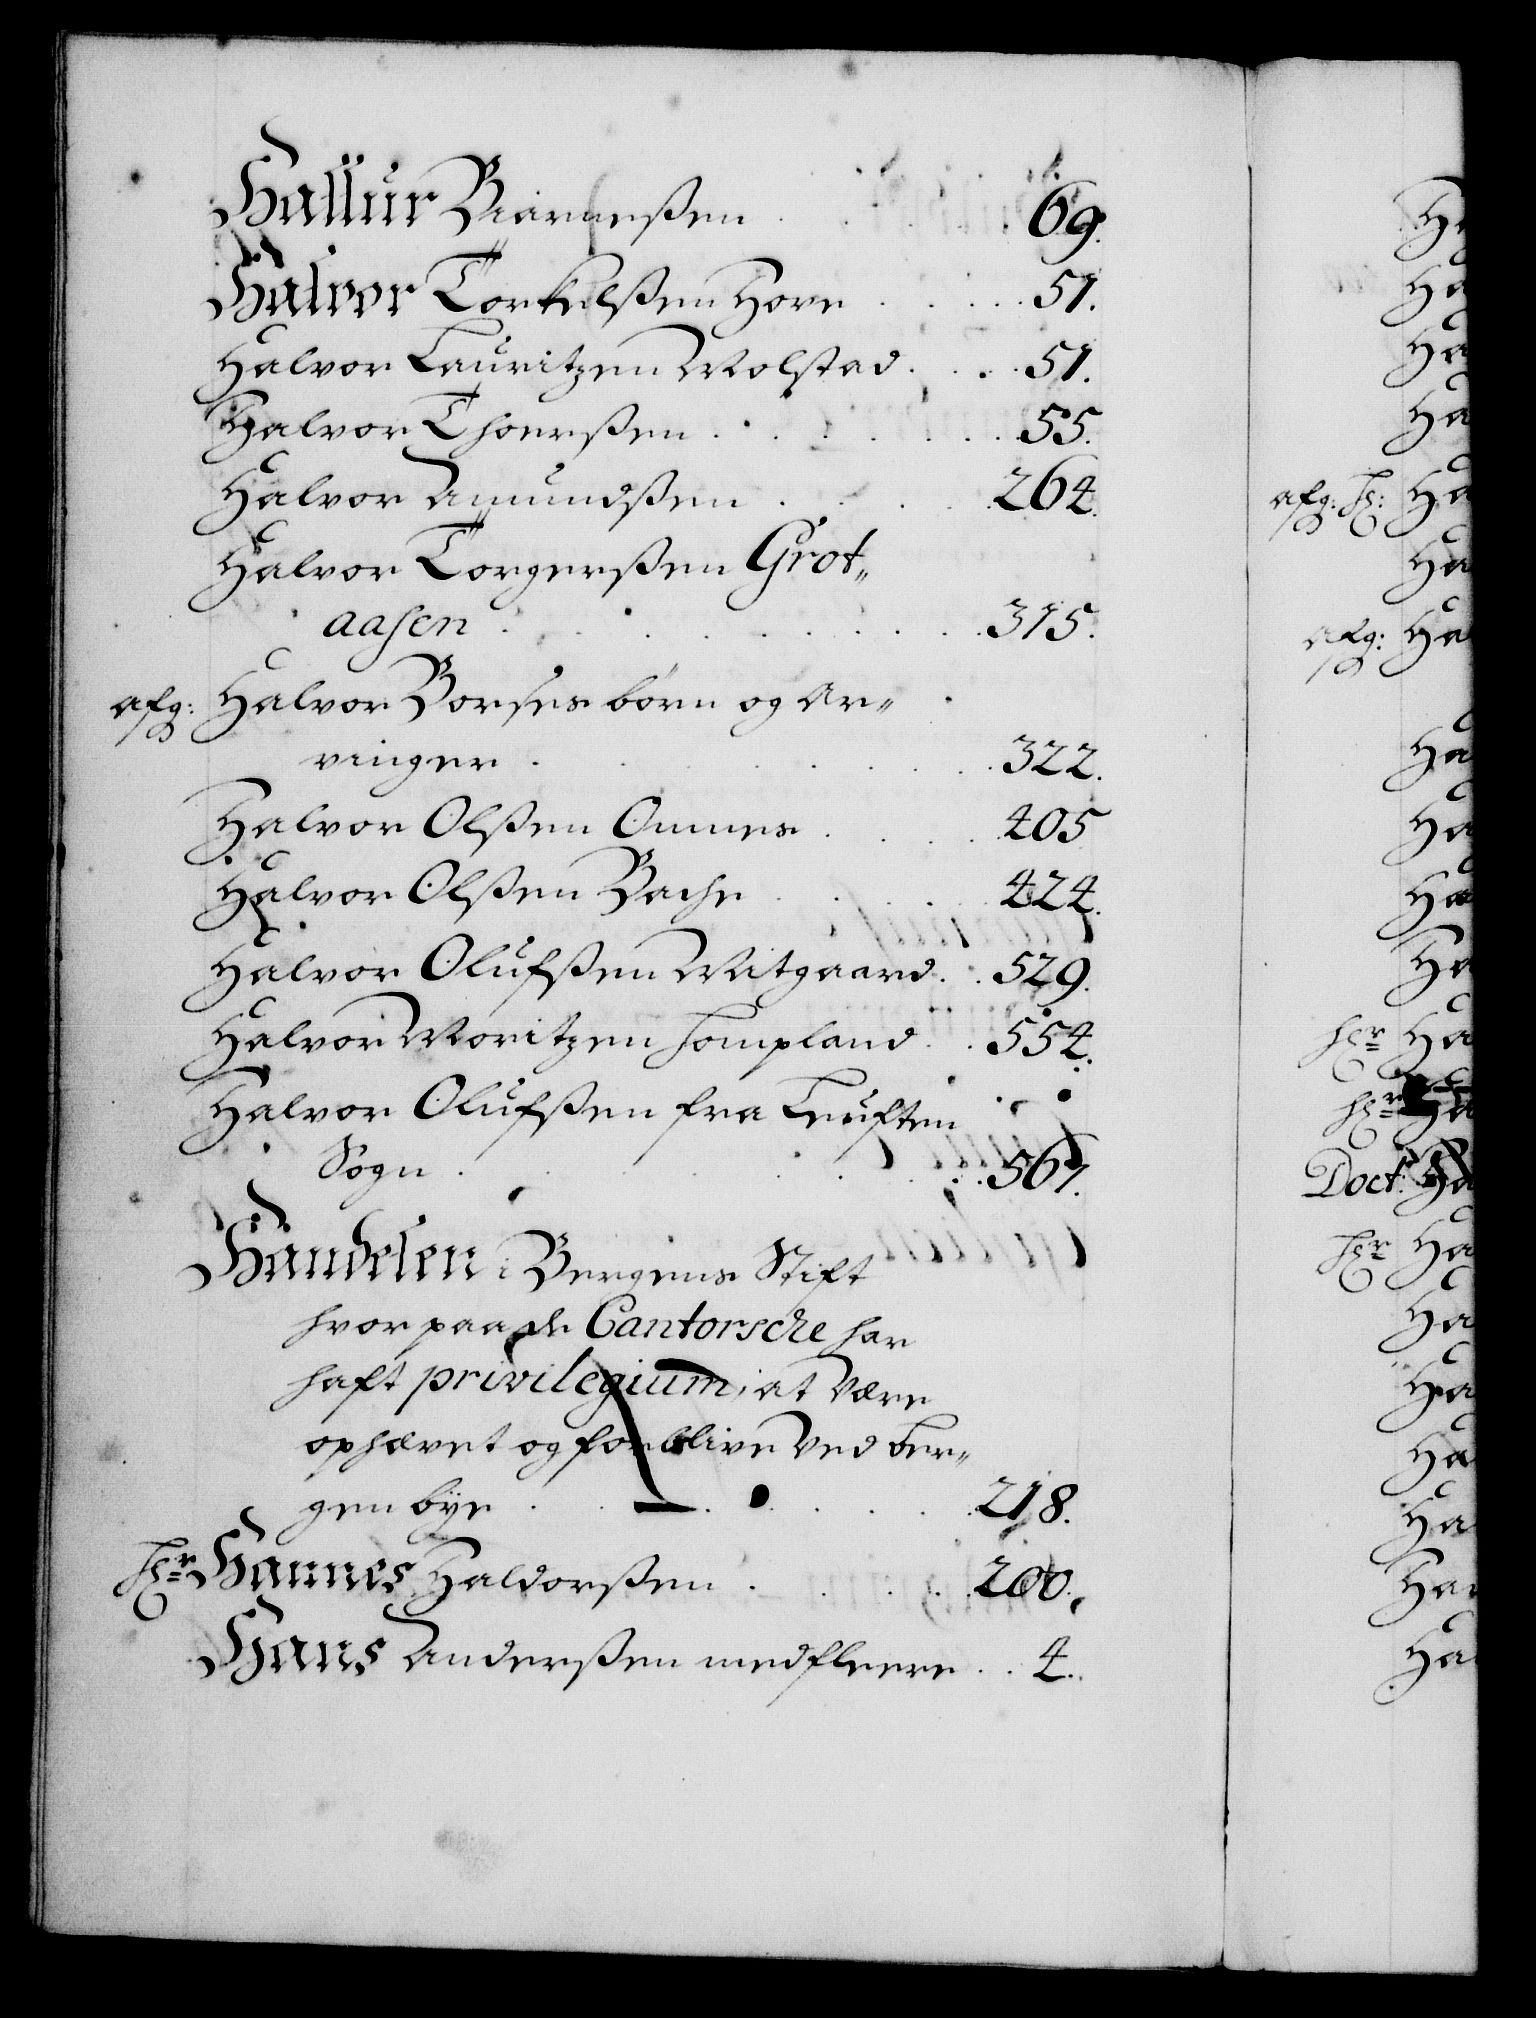 Hallur Biarneßen . . . . 69.
Halvor Torkelßen Hove . . . . 51.
Halvor Lauritzen Molstad . . . . 51.
Halvor Thoerßen . . . . . . . 55.
Halvor Amundßen . . . . 264.
Halvor Torgerßen Grot„
aasen . . . . . . . . 315.
afg: Halvor Borses børn og Ar„
vinger . . . . . . . 322.
Halvor Olßen Onnes . . . . 405
Halvor Olßen Bache . . . . 424.
Halvor Olufßen Mitgaard . . 529.
Halvor Moritzen Hompland . . 554.
Halvor Olufßen fra Leuften
Sogn . . . . . . . 567.
Handelen i Bergens Stift
hvorpaa de Cantorsche har
haft privilegium, at være
ophævet og forblive ved Ber„
gen bye . . . . . . 218.
Hr Hannes Haldorßen . . . . 200.
Hans Anderßen med fleere . . 4.
afg: Hr: Ha
afg: Ha
Hr Ha
Hr Ha
Doct: Ha
Hr Ha